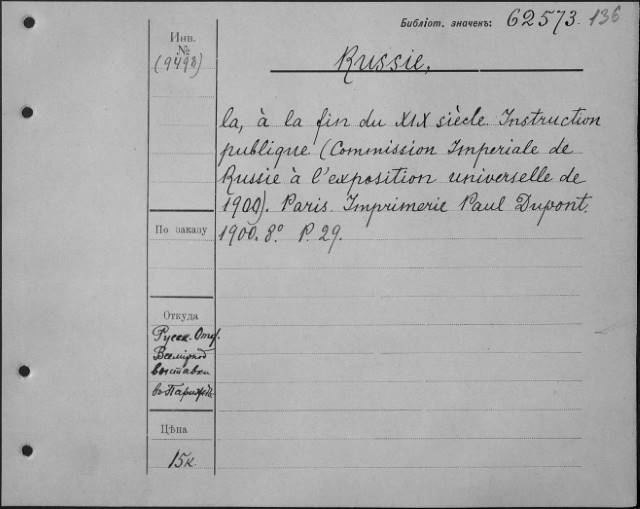 Библіот. значекъ: 62573. 136
Инв.
№
(9498)
Russie,
la, à la fin du XIX siècle Instruction
publique (Commission Imperiale de
Russie à l'exposition universelle de
1900). Paris. Imprimerie Paul Dupont.
1900. 8º P. 29.
По заказу
Откуда
Русск. Отд.
Всемірной
выставки
въ Парижѣ
Цѣна
15 к